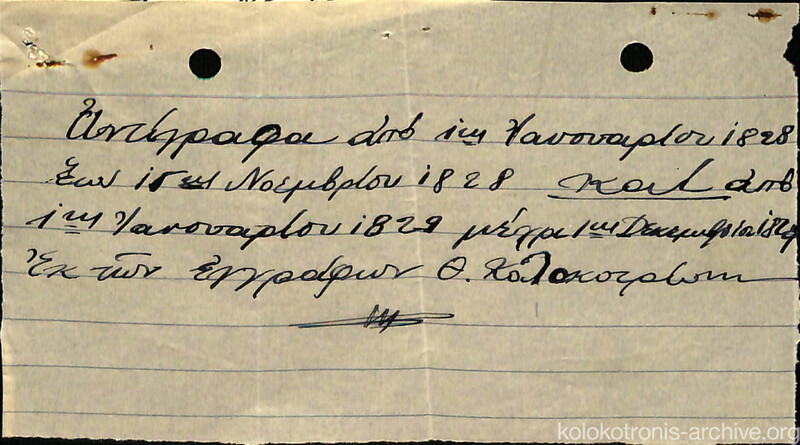 Ἀντίγραφα ἀπὸ 1ης Ἰανουαρίου 1828
ἕως 15ης Νοεμβρίου 1828 καὶ ἀπὸ
1ης Ἰανουαρίου 1829 μέχρι 1ης Δεκεμβρίου 1829
Ἐκ τῶν ἐγγράφων Θ. Κολοκοτρώνη
kolokotronis-archive.org